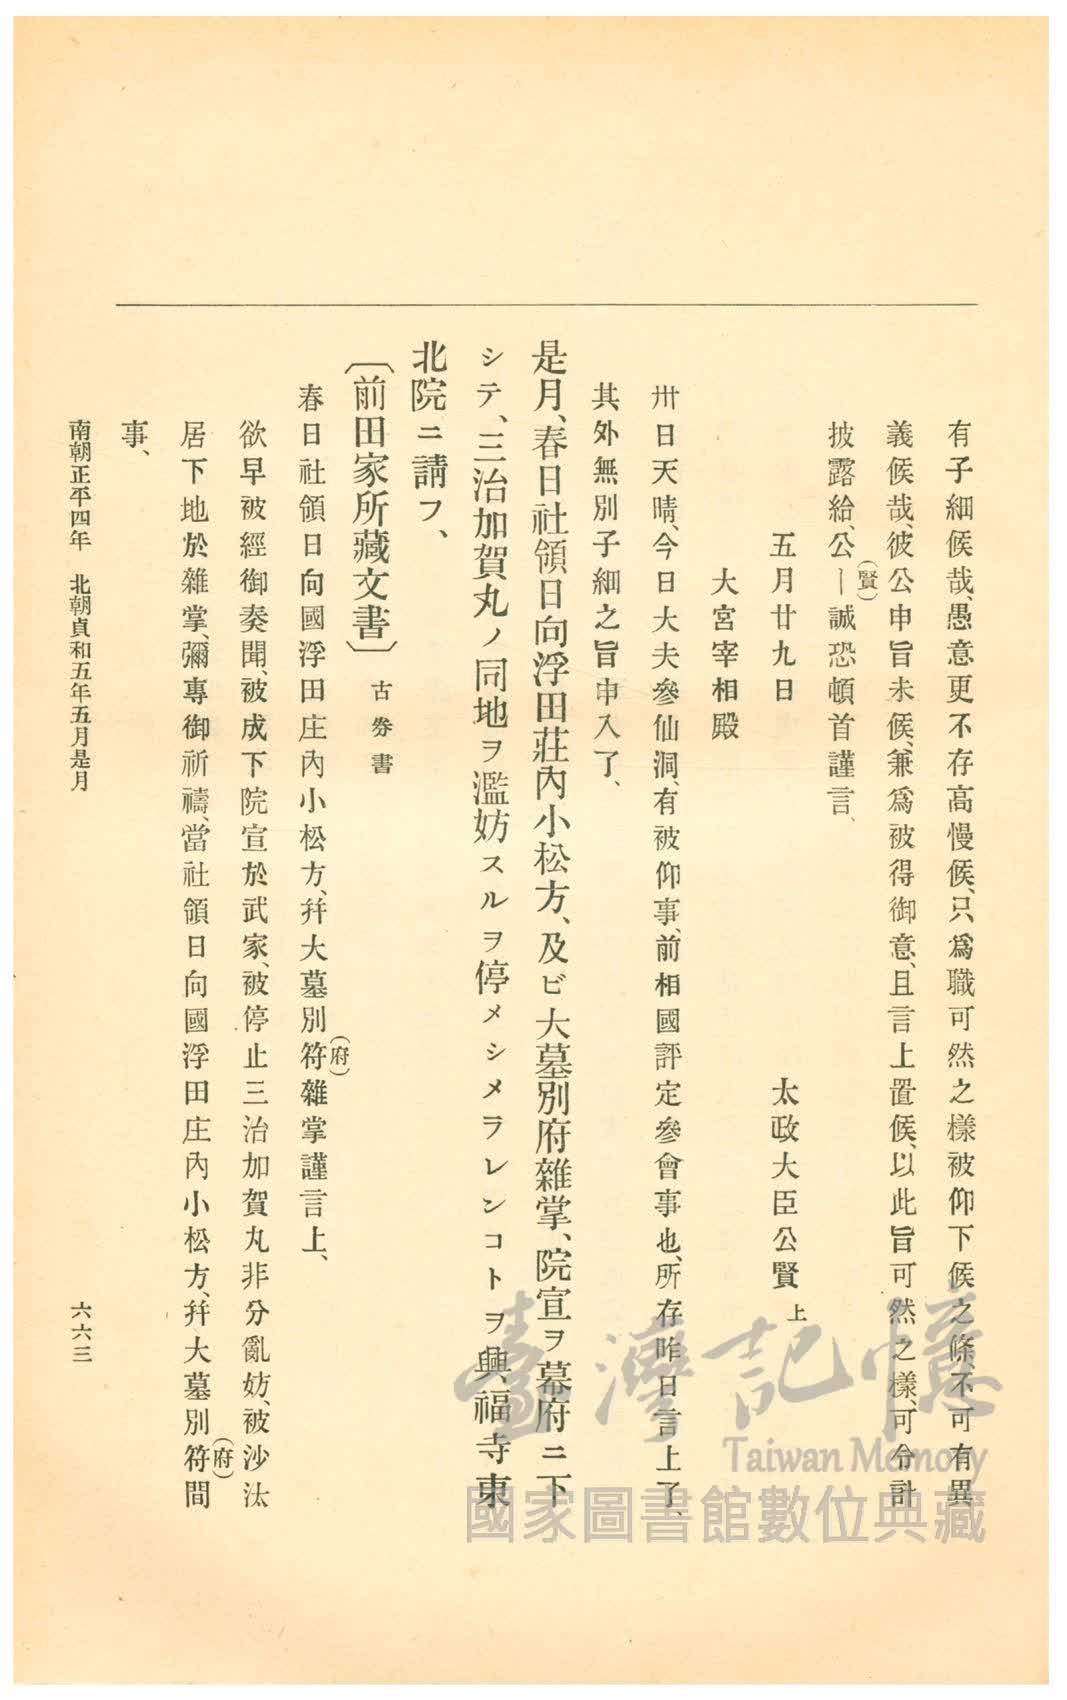 有子細候哉、愚意更不存高慢候、只爲職可然之樣被仰下候之條、不可有異
義候哉、彼公申旨未候、兼爲被得御意、且言上置候、以此旨可然之樣、可分計
披露給、公(賢)—誠恐頓首謹言、
五月廿九日 太政大臣公賢上
大宮宰相殿
卅日天晴、今日大夫參仙洞、有被仰事、前相國評定參會事也、所存昨日言上了、
其外無別子細之旨申入了、
是月、春日社領日向浮田莊內小松方、及ビ大墓別府雜掌、院宣ヲ幕府ニ下
シテ、三治加賀丸ノ同地ヲ濫妨スルヲ停メシメラレンコトヲ興福寺東
北院ニ請フ、
〔前田家所藏文書〕古券書
春日社領日向國浮田庄內小松方、幷大墓別符(府)雜掌謹言上、
欲早被經御奏聞、被成下院宣於武家、被停止三治加賀丸非分亂妨、被沙汰
居下地於雜掌、彌專御祈禱、當社領日向國浮田庄內小松方、幷大墓別符(府)間
事、
南朝正平四年 北朝貞和五年五月是月 六六三
臺灣記憶
Taiwan Memory
國家圖書館數位典藏